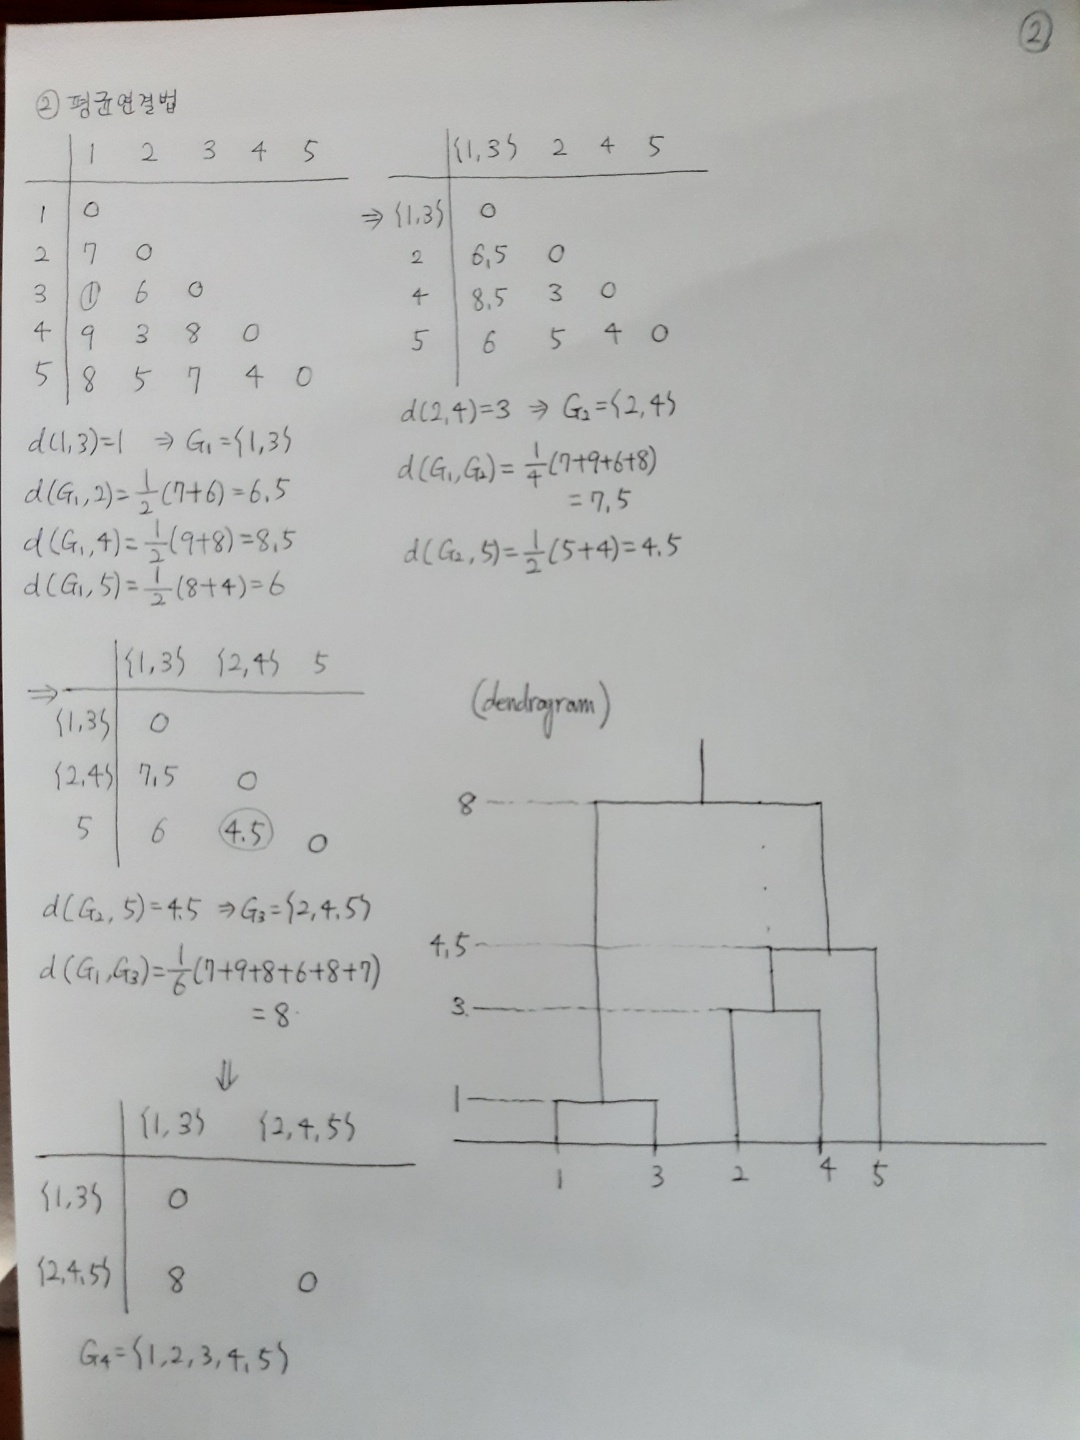 ②
② 평균연결법
1 2 3 4 5
1 0
2 7 0
3 ① 6 0
4 9 3 8 0
5 8 5 7 4 0
d(1,3)=1 ⇒ G₁={1,3}
d(G₁,2)=1/2(7+6)=6.5
d(G₁,4)=1/2(9+8)=8.5
d(G₁,5)=1/2(8+4)=6
{1,3} 2 4 5
⇒ {1,3} 0
2 6.5 0
4 8.5 3 0
5 6 5 4 0
d(2,4)=3 ⇒ G₂={2,4}
d(G₁,G₂)=1/4(7+9+6+8)
=7.5
d(G₂,5)=1/2(5+4)=4.5
{1,3} {2,4} 5
⇒
{1,3} 0
{2,4} 7.5 0
5 6 4.5 0
d(G₂,5)=4.5 ⇒ G₃={2,4,5}
d(G₁,G₃)=1/6(7+9+8+6+8+7)
=8
⇓
{1,3} {2,4,5}
{1,3} 0
{2,4,5} 8 0
G₄={1,2,3,4,5}
(dendrogram)
8
4.5
3
1
1 3 2 4 5